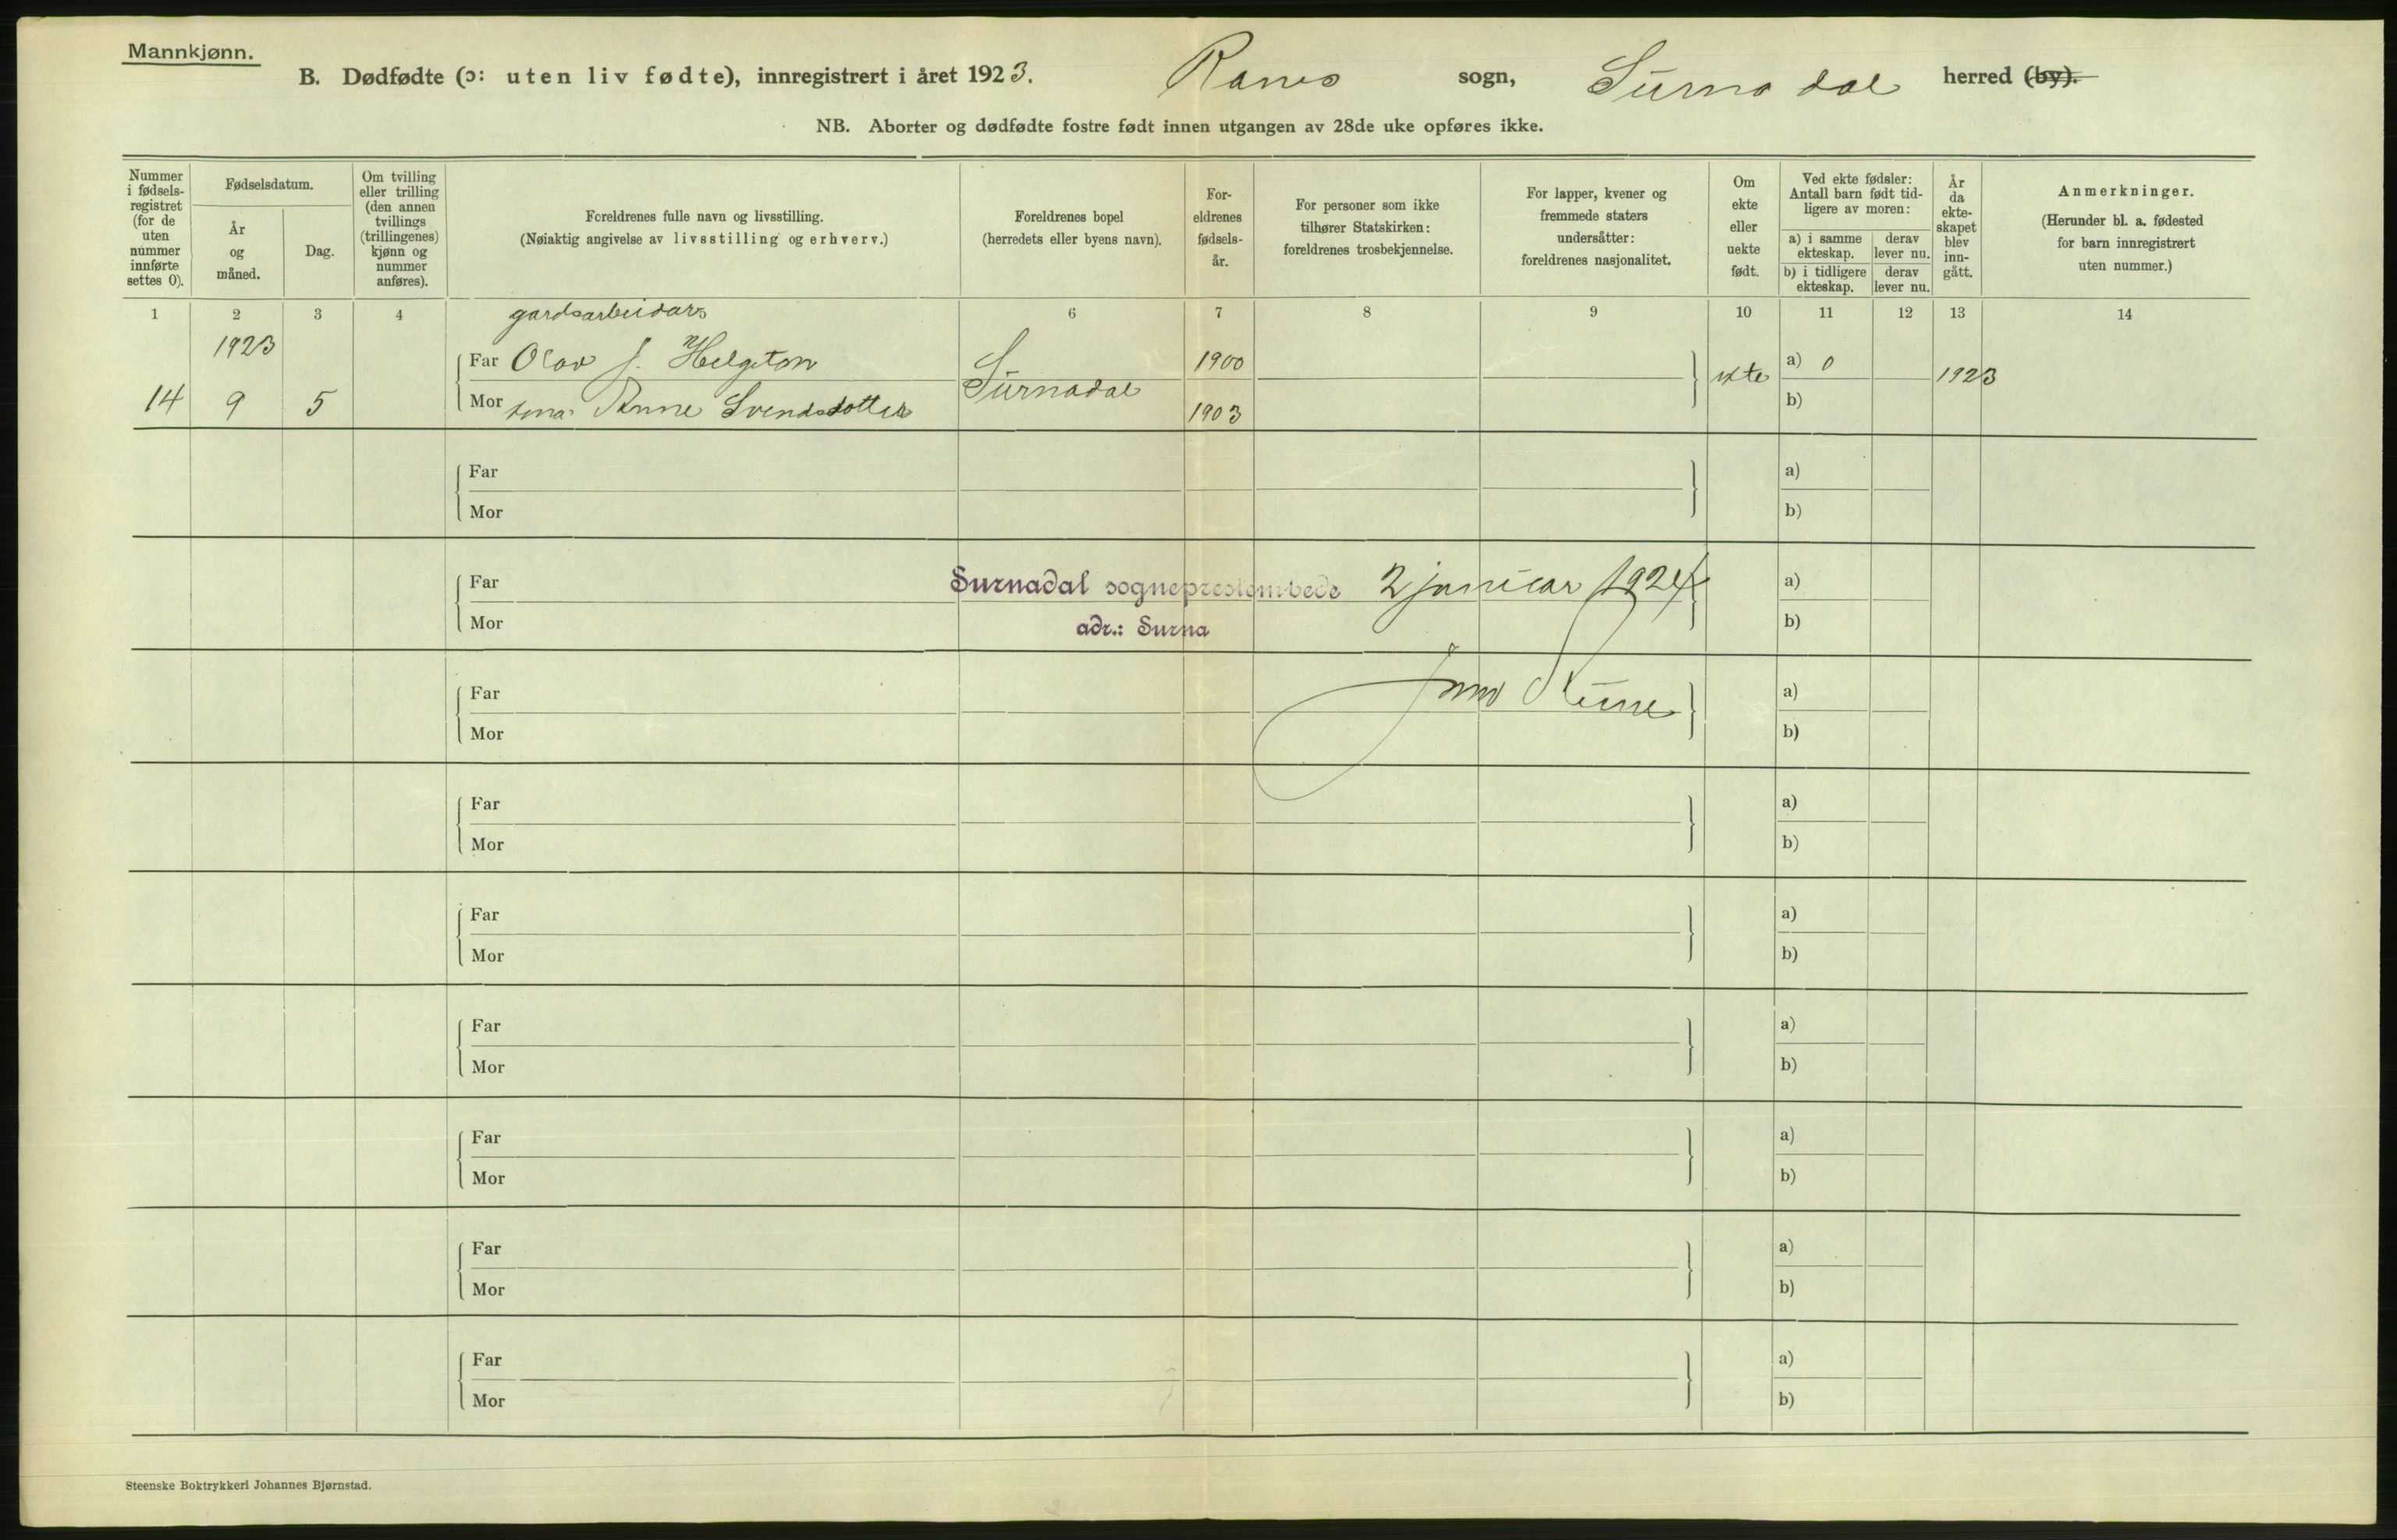 Mannkjønn.
B. Dødfødte (ɔ: uten liv fødte), innregistrert i året 1923. Ranes sogn, Surnadal herred (by).
NB. Aborter og dødfødte fostre født innen utgangen av 28de uke opføres ikke.
Nummer i fødsels-registret (for de uten nummer innførte settes 0).
Fødselsdatum.
År og måned.
Dag.
Om tvilling eller trilling (den annen tvillings (trillingenes) kjønn og nummer anføres).
Foreldrenes fulle navn og livsstilling.
(Nøiaktig angivelse av livsstilling og erhverv.)
Foreldrenes bopel
(herredets eller byens navn).
For-eldrenes fødsels-år.
For personer som ikke tilhører Statskirken: foreldrenes trosbekjennelse.
For lapper, kvener og fremmede staters undersåtter: foreldrenes nasjonalitet.
Om ekte eller uekte født.
Ved ekte fødsler: Antall barn født tid-ligere av moren:
a) i samme ekteskap.
derav lever nu.
b) i tidligere ekteskap.
derav lever nu.
År da ekte-skapet blev inn-gått.
Anmerkninger.
(Herunder bl. a. fødested for barn innregistrert uten nummer.)
1 2 3 4 gardsarbeidar 6 7 8 9 10 11 12 13 14
1923
Far Olav J. Helgeton 1900 a) 0
14 9 5 Mor kona Anne Svendsdotter Surnadal 1903 ekte b) 1923
Far a)
Mor b)
Far Surnadal sogneprestembede 2 januar 1924 a)
Mor adr.: Surna b)
Far a)
Mor b)
Far a)
Mor b)
Far a)
Mor b)
Far a)
Mor b)
Far a)
Mor b)
Far a)
Mor b)
Far a)
Mor b)
Steenske Boktrykkeri Johannes Bjørnstad.